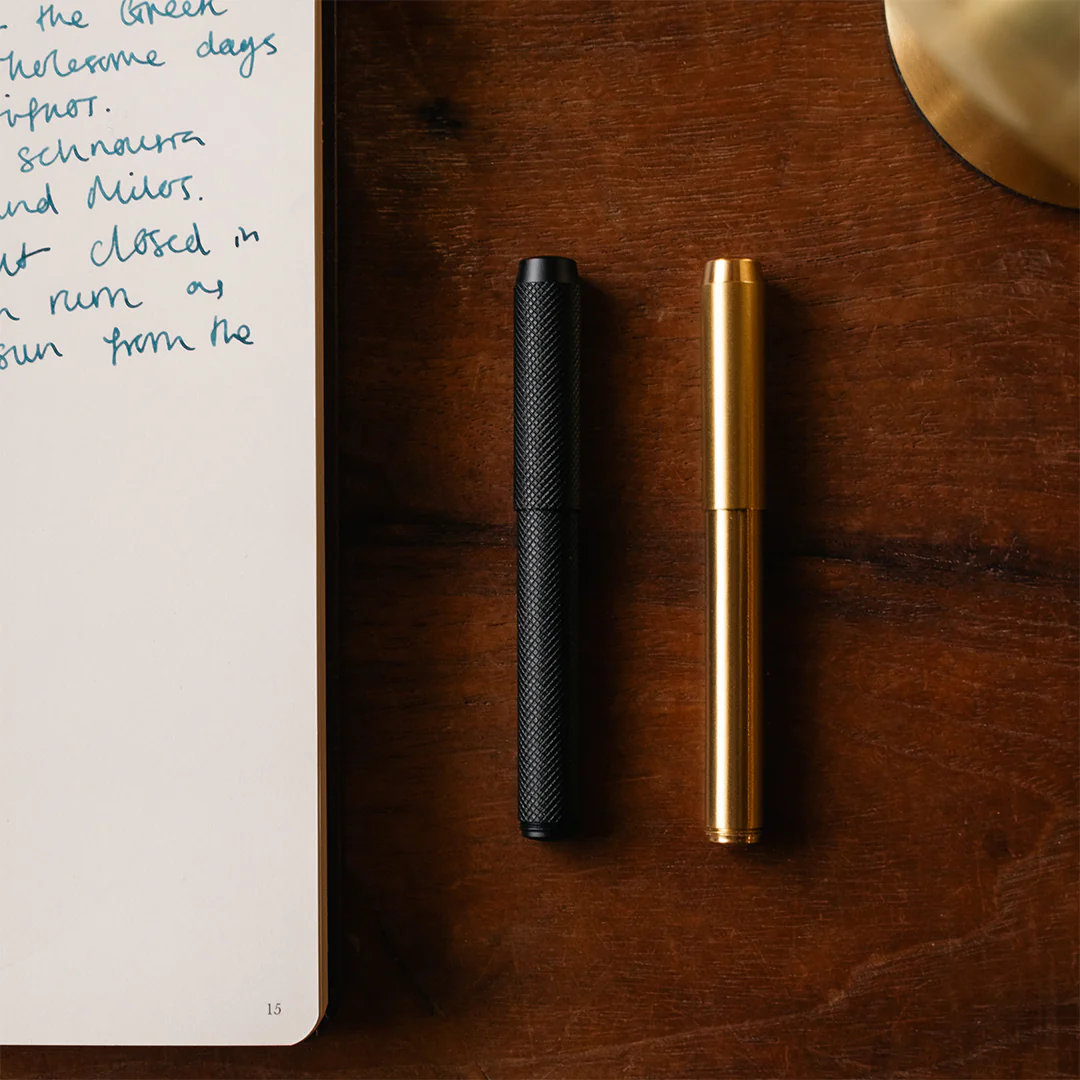 the Greek
wholesome days
schnoussa
and Milos.
closed in
rum as
sun from the
15